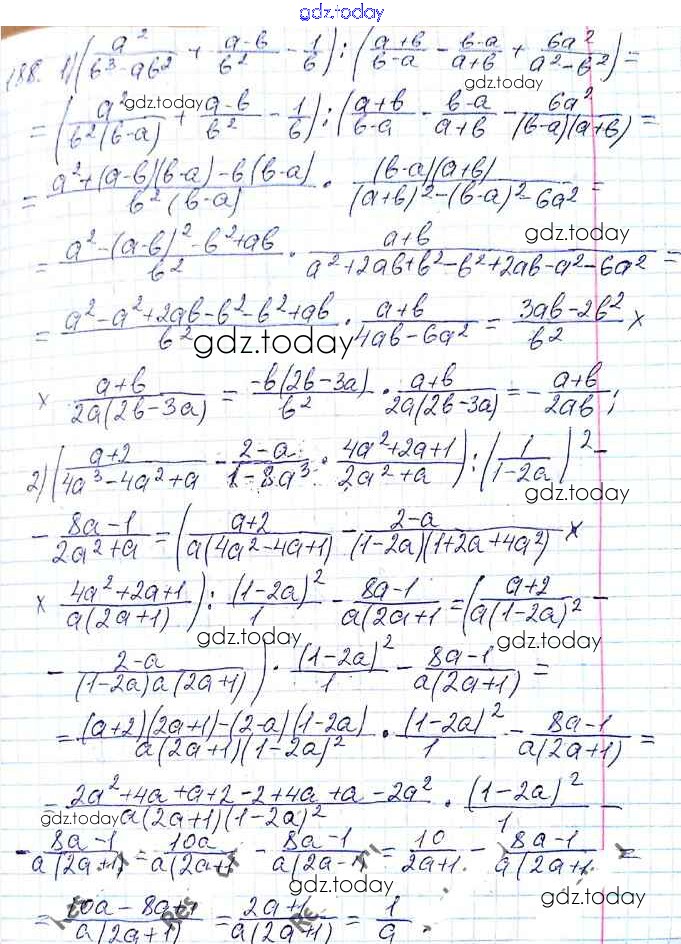 gdz.today
188. 1) (a²/(в³-aв²) + (a-в)/в² - 1/в) : ((a+в)/(в-a) - (в-a)/(a+в) + 6a²/(a²-в²)) =
gdz.today
= (a²/(в²(в-a)) + (a-в)/в² - 1/в) : ((a+в)/(в-a) - (в-a)/(a+в) - 6a²/((в-a)(a+в))) =
gdz.today
= (a²+(a-в)(в-a)-в(в-a))/(в²(в-a)) · ((в-a)(a+в))/((a+в)²-(в-a)²-6a²) =
gdz.today
= (a²-(a-в)²-в²+aв)/в² · (a+в)/(a²+2aв+в²-в²+2aв-a²-6a²) =
= (a²-a²+2aв-в²-в²+aв)/в² · (a+в)/(4aв-6a²) = (3aв-2в²)/в² ×
gdz.today
× (a+в)/(2a(2в-3a)) = (-в(2в-3a))/в² · (a+в)/(2a(2в-3a)) = -(a+в)/(2aв);
gdz.today
2) ((a+2)/(4a³-4a²+a) - (2-a)/(1-8a³) · (4a²+2a+1)/(2a²+a)) : (1/(1-2a))² -
gdz.today
- (8a-1)/(2a²+a) = ((a+2)/(a(4a²-4a+1)) - (2-a)/((1-2a)(1+2a+4a²)) ×
× (4a²+2a+1)/(a(2a+1))) : (1-2a)²/1 - (8a-1)/(a(2a+1) = ((a+2)/(a(1-2a)²) -
gdz.today
gdz.today
- (2-a)/((1-2a)a(2a+1))) · (1-2a)²/1 - (8a-1)/(a(2a+1)) =
gdz.today
= ((a+2)(2a+1)-(2-a)(1-2a))/(a(2a+1)(1-2a)²) · (1-2a)²/1 - (8a-1)/(a(2a+1)) =
= (2a²+4a+a+2-2+4a+a-2a²)/(a(2a+1)(1-2a)²) · (1-2a)²/1 -
gdz.today
- (8a-1)/(a(2a+1)) = 10a/(a(2a+1) - (8a-1)/(a(2a-1) = 10/(2a+1) - (8a-1)/(a(2a+1) =
gdz.today
gdz.today
= (10a-8a+1)/(a(2a+1)) = (2a+1)/(a(2a+1)) = 1/a.
gdz.today